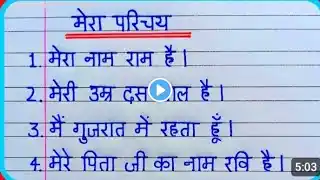 मेरा परिचय
1. मेरा नाम राम है।
2. मेरी उम्र दस साल है।
3. मैं गुजरात में रहता हूँ।
4. मेरे पिता जी का नाम रवि है।
5:03